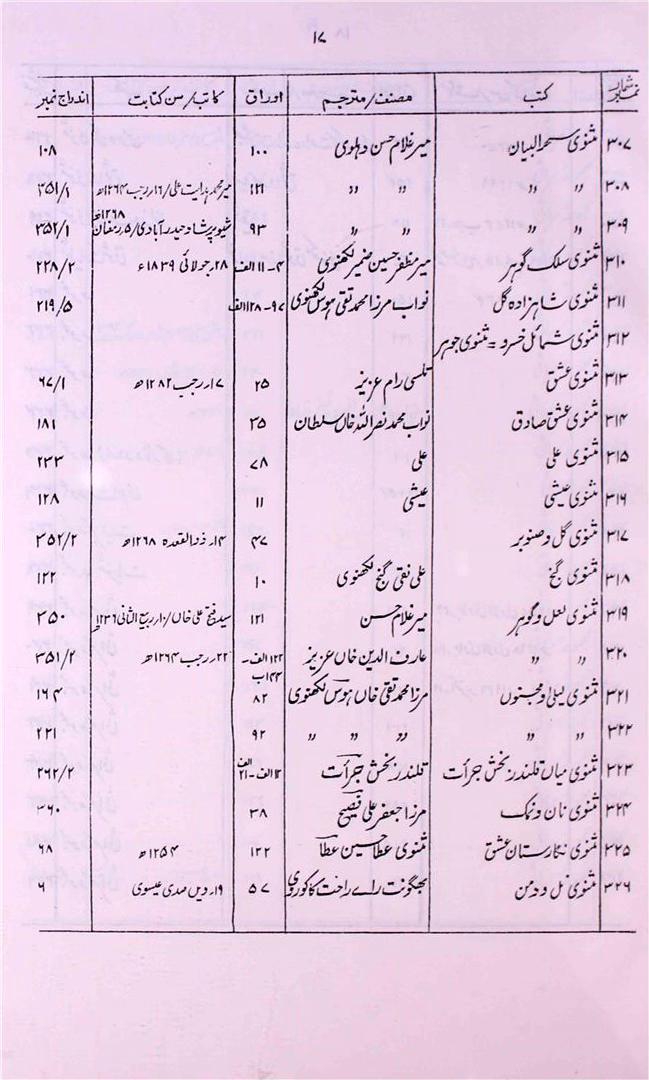 ۱۷
شمار نمبر	کتب	مصنف/مترجم	اوراق	کاتب/سن کتابت	اندراج نمبر
۳۰۷	مثنوی سحرالبیان	میر غلام حسن دہلوی	۱۰۰		۱۰۸
۳۰۸	〃 〃	〃 〃	۱۲۱	میر محمد ہدایت علی/۱۶ رجب ۱۲۶۴ھ	۳۵۱/۱
۳۰۹	〃 〃	〃 〃	۹۳	شیو پرشاد حیدرآبادی/۵ رمضان ۱۲۶۸ھ	۳۵۲/۱
۳۱۰	مثنوی سلک گوہر	میر مظفر حسین ضمیر لکھنوی	۴-۱۱ الف	۲۸ جولائی ۱۸۳۹ء	۲۲۸/۲
۳۱۱	مثنوی شاہزادہ گل	نواب مرزا محمد تقی ہوس لکھنوی	۹۷-۱۲۸ الف		۲۱۹/۵
۳۱۲	مثنوی شمائل خسرو = مثنوی جوہر
۳۱۳	مثنوی عشق	تلسی رام عزیز	۲۵	۱۷ رجب ۱۲۸۲ھ	۶۷/۱
۳۱۴	مثنوی عشق صادق	نواب محمد نصراللہ خاں سلطان	۳۵		۱۸۱
۳۱۵	مثنوی علی	علی	۷۸		۲۳۳
۳۱۶	مثنوی عیشی	عیشی	۱۱		۱۲۸
۳۱۷	مثنوی گل و صنوبر		۴۷	۱۴ ذوالقعدہ ۱۲۶۸ھ	۳۵۲/۲
۳۱۸	مثنوی گنج	علی نقی گنج لکھنوی	۱۰		۱۲۲
۳۱۹	مثنوی لعل و گوہر	میر غلام حسن	۱۲۱	سید فتح علی خاں/۱۰ ربیع الثانی ۱۲۳۶ھ	۳۵۰
۳۲۰	〃 〃	عارف الدین خاں عزیز	۱۲۲ الف-۱۴۴ ب	۲۲ رجب ۱۲۶۴ھ	۳۵۱/۲
۳۲۱	مثنوی لیلیٰ و مجنوں	مرزا محمد تقی خاں ہوس لکھنوی	۸۲		۱۶۴
۳۲۲	〃 〃	〃 〃	۹۲		۲۲۱
۳۲۳	مثنوی میاں قلندر بخش جرأت	قلندر بخش جرأت	۱۲ الف-۲۱ الف		۲۶۲/۲
۳۲۴	مثنوی نان و نمک	مرزا جعفر علی فصیح	۳۸		۳۶۰
۳۲۵	مثنوی نگارستان عشق	مثنوی عطا حسین عطا	۱۲۲	۱۲۵۴ھ	۶۸
۳۲۶	مثنوی نل و دمن	بھگونت راے راحت کاکوروی	۵۷	۱۹ ویں صدی عیسوی	۶